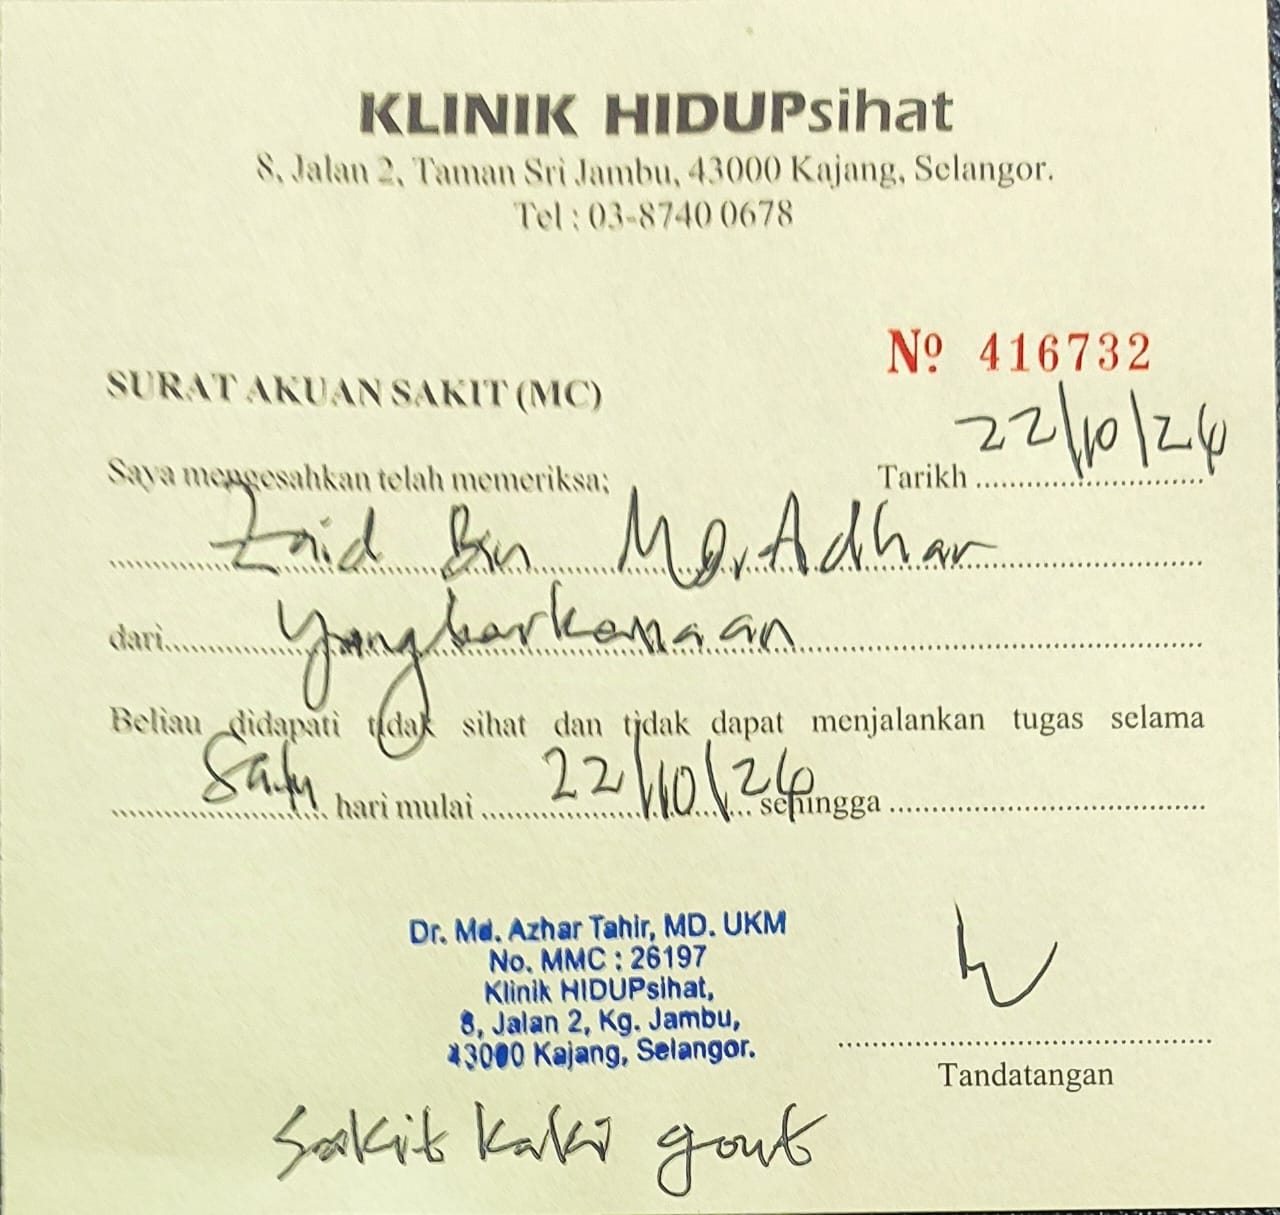 KLINIK HIDUPsihat
8, Jalan 2, Taman Sri Jambu, 43000 Kajang, Selangor.
Tel : 03-8740 0678
Nº 416732
SURAT AKUAN SAKIT (MC)
Saya mengesahkan telah memeriksa; Tarikh 22/10/24
Zaid Bin Md. Adhar
dari Yang berkenaan
Beliau didapati tidak sihat dan tidak dapat menjalankan tugas selama
Satu hari mulai 22/10/24 sehingga
Dr. Md. Azhar Tahir, MD. UKM
No. MMC : 26197
Klinik HIDUPsihat,
8, Jalan 2, Kg. Jambu,
43000 Kajang, Selangor.
Tandatangan
Sakit kaki gout